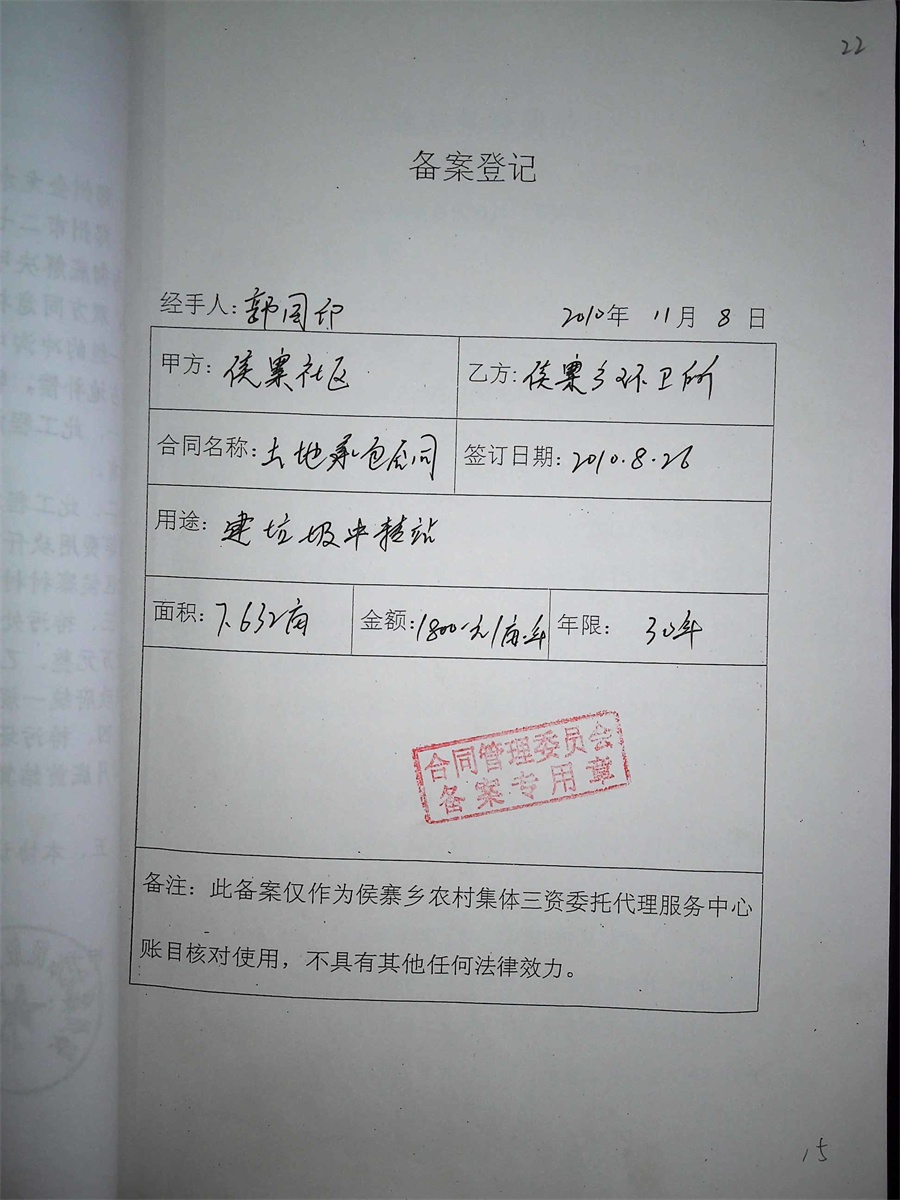 22
备案登记
经手人：郭同印 2010年 11月 8日
甲方：侯寨社区 乙方：侯寨乡环卫所
合同名称：土地承包合同 签订日期：2010.8.26
用途：建垃圾中转站
面积：7.632亩 金额：1800元/亩.年 年限： 30年
合同管理委员会
备案专用章
备注：此备案仅作为侯寨乡农村集体三资委托代理服务中心
账目核对使用，不具有其他任何法律效力。
15